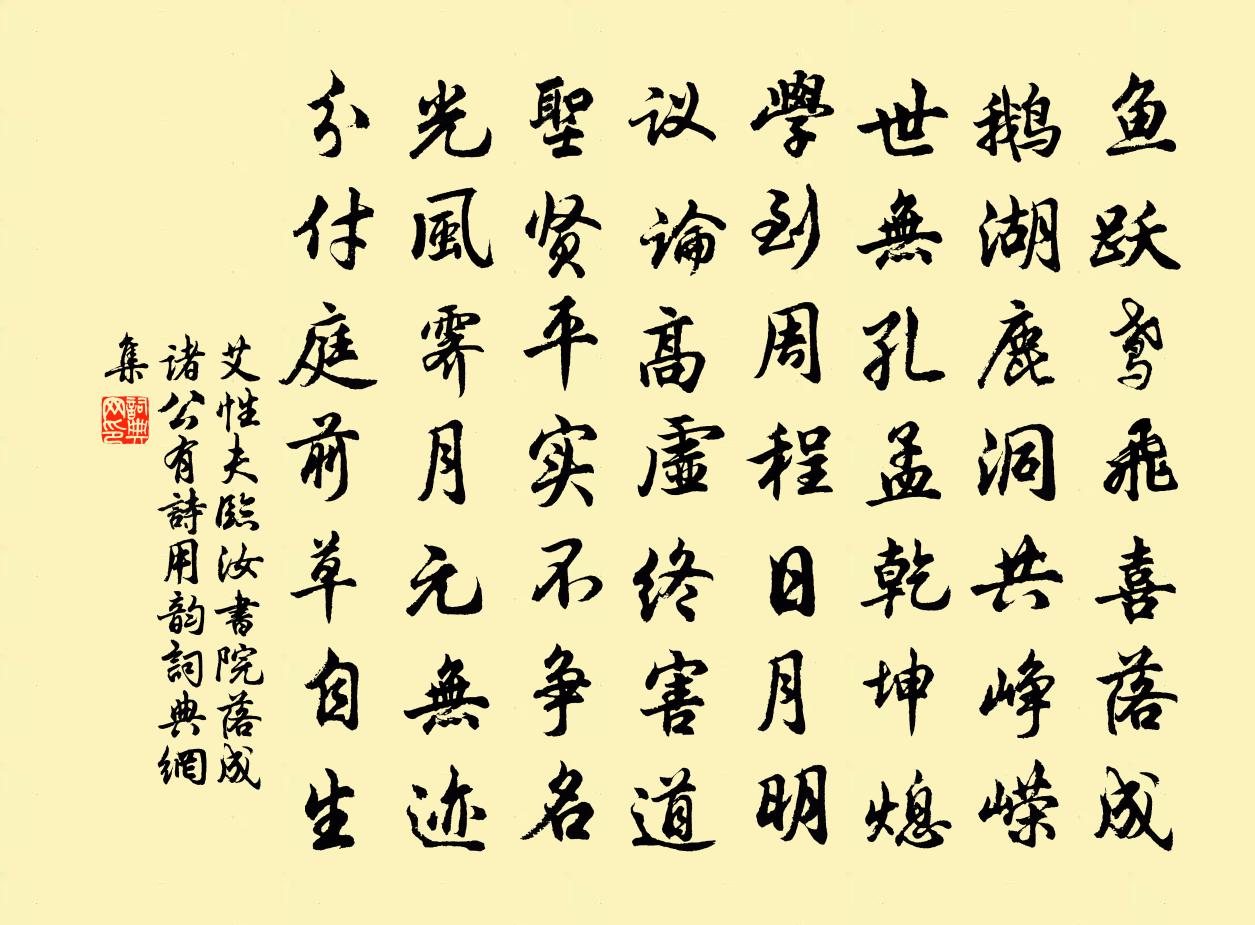 鱼跃鸢飛喜落成
鹅湖鹿洞共峥嵘
世無孔孟乾坤熄
學到周程日月明
议論高虚终害道
聖贤平实不争名
光風霽月元無迹
分付庭前草自生
艾性夫臨汝書院落成
诸公有詩用韵詞典網
集
詞典
网印